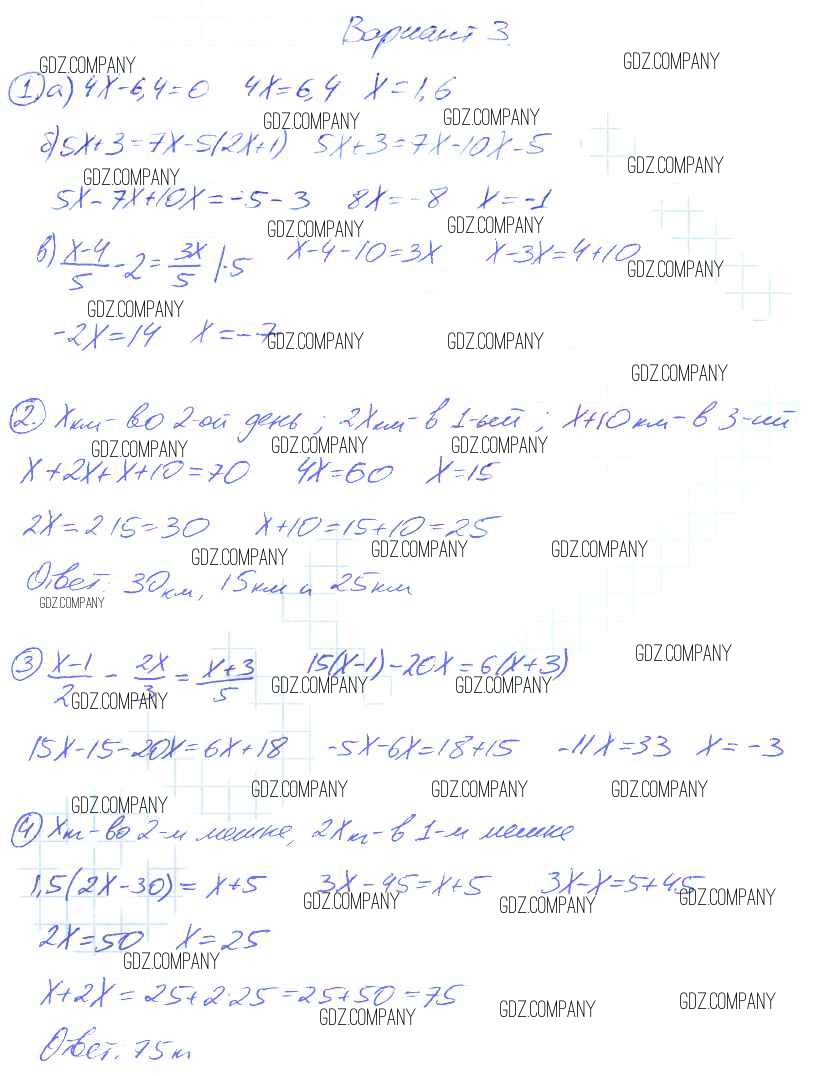 Вариант 3.
GDZ.COMPANY GDZ.COMPANY
1 а) 4x-6,4=0 4x=6,4 x=1,6
GDZ.COMPANY GDZ.COMPANY
б) 5x+3=7x-5(2x+1) 5x+3=7x-10x-5
GDZ.COMPANY GDZ.COMPANY
5x-7x+10x=-5-3 8x=-8 x=-1
GDZ.COMPANY GDZ.COMPANY
в) (x-4)/5 - 2 = 3x/5 |·5 x-4-10=3x x-3x=4+10
GDZ.COMPANY
GDZ.COMPANY
-2x=14 x=-7
GDZ.COMPANY GDZ.COMPANY
GDZ.COMPANY
2. x км - во 2-ой день; 2x км - в 1-ый; x+10 км - в 3-ий
GDZ.COMPANY GDZ.COMPANY GDZ.COMPANY
x+2x+x+10=70 4x=60 x=15
2x=2·15=30 x+10=15+10=25
GDZ.COMPANY GDZ.COMPANY GDZ.COMPANY
Ответ: 30 км, 15 км и 25 км
GDZ.COMPANY
GDZ.COMPANY
3 (x-1)/2 - 2x/3 = (x+3)/5 15(x-1)-20x=6(x+3)
GDZ.COMPANY GDZ.COMPANY GDZ.COMPANY
15x-15-20x=6x+18 -5x-6x=18+15 -11x=33 x=-3
GDZ.COMPANY GDZ.COMPANY GDZ.COMPANY GDZ.COMPANY
4 x кг - во 2-м мешке, 2x кг - в 1-м мешке
1,5(2x-30)=x+5 3x-45=x+5 3x-x=5+45
GDZ.COMPANY GDZ.COMPANY GDZ.COMPANY
2x=50 x=25
GDZ.COMPANY
x+2x=25+2·25=25+50=75
GDZ.COMPANY GDZ.COMPANY GDZ.COMPANY
Ответ: 75 кг